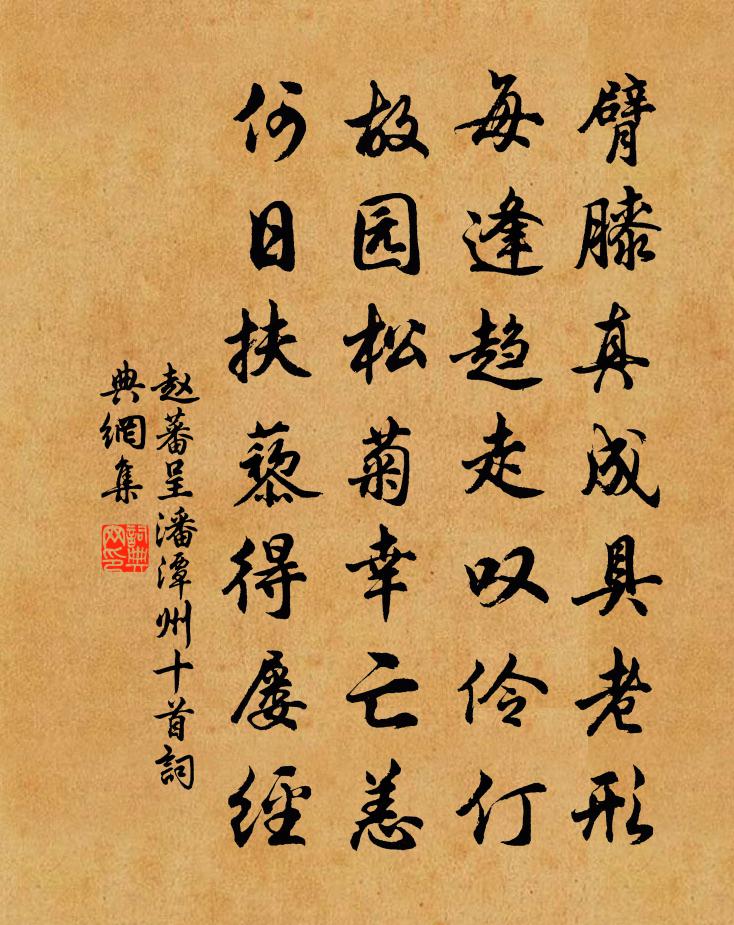 臂膝真成具老形
每逢趋走叹伶仃
故园松菊幸亡恙
何日扶藜得屡经
赵蕃呈潘潭州十首詞
典網集
詞典
网印